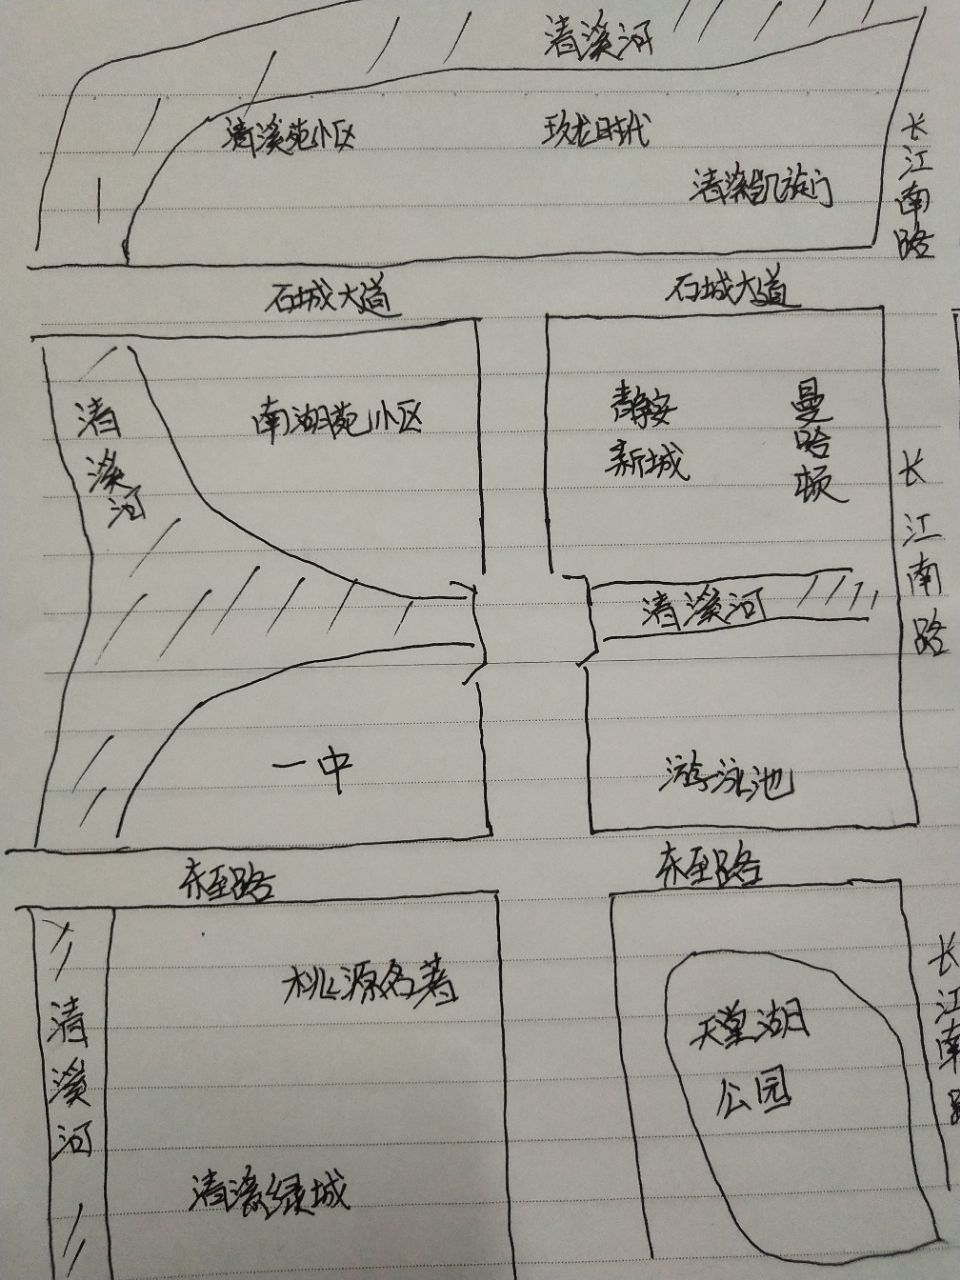 清溪河
清溪苑小区
玖龙时代
清溪凯旋门
长江南路
石城大道
石城大道
清溪河
南湖苑小区
静安
新城
曼哈顿
长江南路
清溪河
一中
游泳池
齐至路
齐至路
清溪河
桃源名著
天堂湖
公园
长江南路
清溪绿城